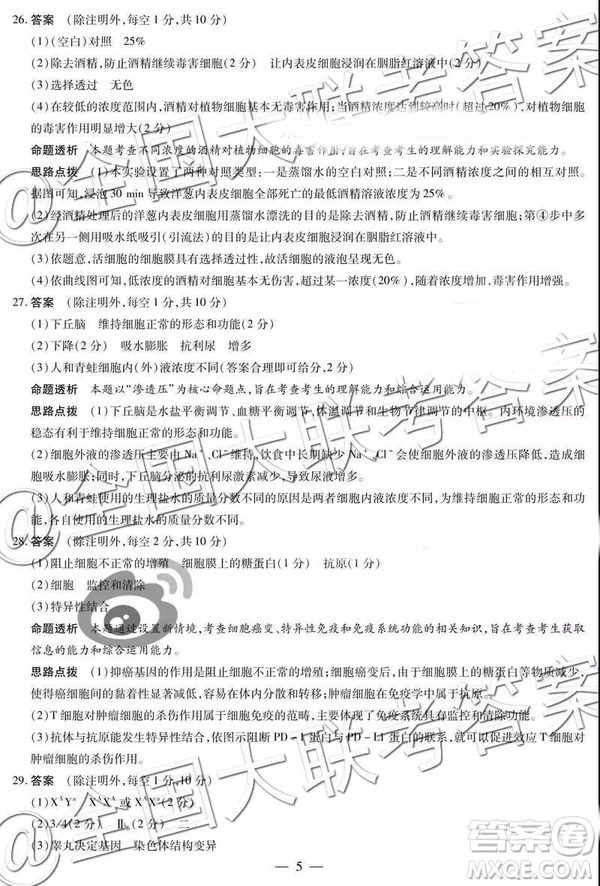 26. 答案 (除注明外,每空1分,共10分)
(1)(空白)对照 25%
(2)除去酒精,防止酒精继续毒害细胞(2分) 让内表皮细胞浸润在胭脂红溶液中(2分)
(3)选择透过 无色
(4)在较低的浓度范围内,酒精对植物细胞基本无毒害作用;当酒精浓度达到较高时(超过20%),对植物细胞的毒害作用明显增大(2分)
命题透析 本题考查不同浓度的酒精对植物细胞的毒害作用,旨在考查考生的理解能力和实验探究能力。
思路点拨 (1)本实验设置了两种对照类型:一是蒸馏水的空白对照,二是不同浓度酒精间的相互对照。据图可知,浸泡30 min导致洋葱内表皮细胞全部死亡的最低酒精溶液浓度为25%。
(2)经酒精处理后的洋葱内表皮细胞用蒸馏水漂洗的目的是除去酒精,防止酒精继续毒害细胞。第④步中多次在盖玻片另一侧用吸水纸吸引(引流法)的目的是让内表皮细胞浸润在胭脂红溶液中。
(3)依题意,活细胞的细胞膜具有选择透过性,胭脂红不能透过,故活细胞的液泡呈现无色。
(4)依曲线图可知,低浓度的酒精对细胞基本无伤害,超过某一浓度(20%),随酒精浓度增大,毒害作用明显增强。
27. 答案 (除注明外,每空1分,共10分)
(1)下丘脑 维持细胞正常的形态和功能(2分)
(2)下降(2分) 吸水膨胀 抗利尿 增多
(3)人和青蛙细胞内(外)液浓度不同(答案合理即可给分)(2分)
命题透析 本题以“渗透压”为核心命题点,旨在考查考生的理解能力和综合运用能力。
思路点拨 (1)下丘脑是水盐平衡调节、血糖平衡调节、体温调节和生物节律调节的中枢。内环境渗透压的稳态有利于维持细胞正常的形态和功能。
(2)细胞外液的渗透压主要由Na⁺、Cl⁻维持,饮食中长期缺少Na⁺、Cl⁻会使细胞外液渗透压降低,造成细胞吸水膨胀;同时,下丘脑分泌的抗利尿激素减少,导致尿液增多。
(3)人和青蛙使用的生理盐水的质量分数不同的原因是两者细胞内液浓度不同,为维持细胞的正常形态和功能,各自使用的生理盐水的质量分数不同。
28. 答案 (除注明外,每空2分,共10分)
(1)阻止细胞不正常的增殖 细胞膜上的糖蛋白(1分) 抗原(1分)
(2)细胞 监控和清除
(3)特异性结合
命题透析 本题通过设置新情境,考查细胞癌变、特异性免疫和免疫系统功能的相关知识,旨在考查考生的获取信息的能力和综合运用能力。
思路点拨 (1)抑癌基因的作用是阻止细胞不正常的增殖;癌细胞由于细胞膜上的糖蛋白等物质减少,使得癌细胞间的黏着性显著降低,容易在体内分散和转移;肿瘤细胞在免疫学中属于抗原。
(2)T细胞对肿瘤细胞的杀伤作用属于细胞免疫的范畴,主要体现了免疫系统的监控和清除功能。
(3)由抗体与抗原能发生特异性结合,依图示阻断PD-1蛋白与PD-L1蛋白的联系,就可以有效解除其对T细胞对肿瘤细胞的杀伤作用。
29. 答案 (除注明外,每空1分,共10分)
(1)XᴬYᵃ XᴬXᴬ或XᴬXᵃ(2分)
(2)3/4(2分) 二
(3)睾丸决定基因 染色体结构变异
— 5 —
@全国大联考答案
@全国大联考答案
@全国大联考答案
答案圈
MXQE.COM